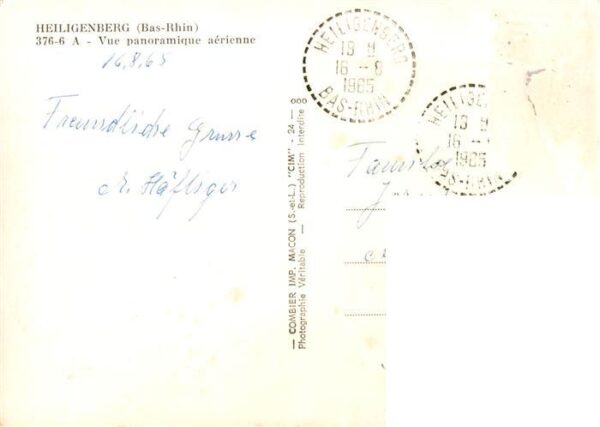 HEILIGENBERG (Bas-Rhin)
376-6 A - Vue panoramique aérienne
16.8.65
Freundliche Grüsse
A. Häfliger
— COMBIER IMP. MACON (S.-et-L.) "CIM" - 24 — 000
Photographie Véritable — Reproduction Interdite
HEILIGENBERG
19 H
16 - 8
1965
BAS-RHIN
HEILIGE
19 H
16 -
1965
BAS-RHIN
Familie